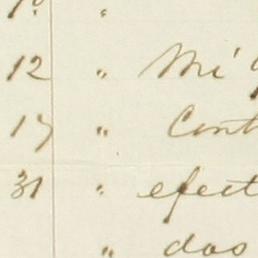 1º "
12 " Mi
17 " Cont
31 " efect
" das